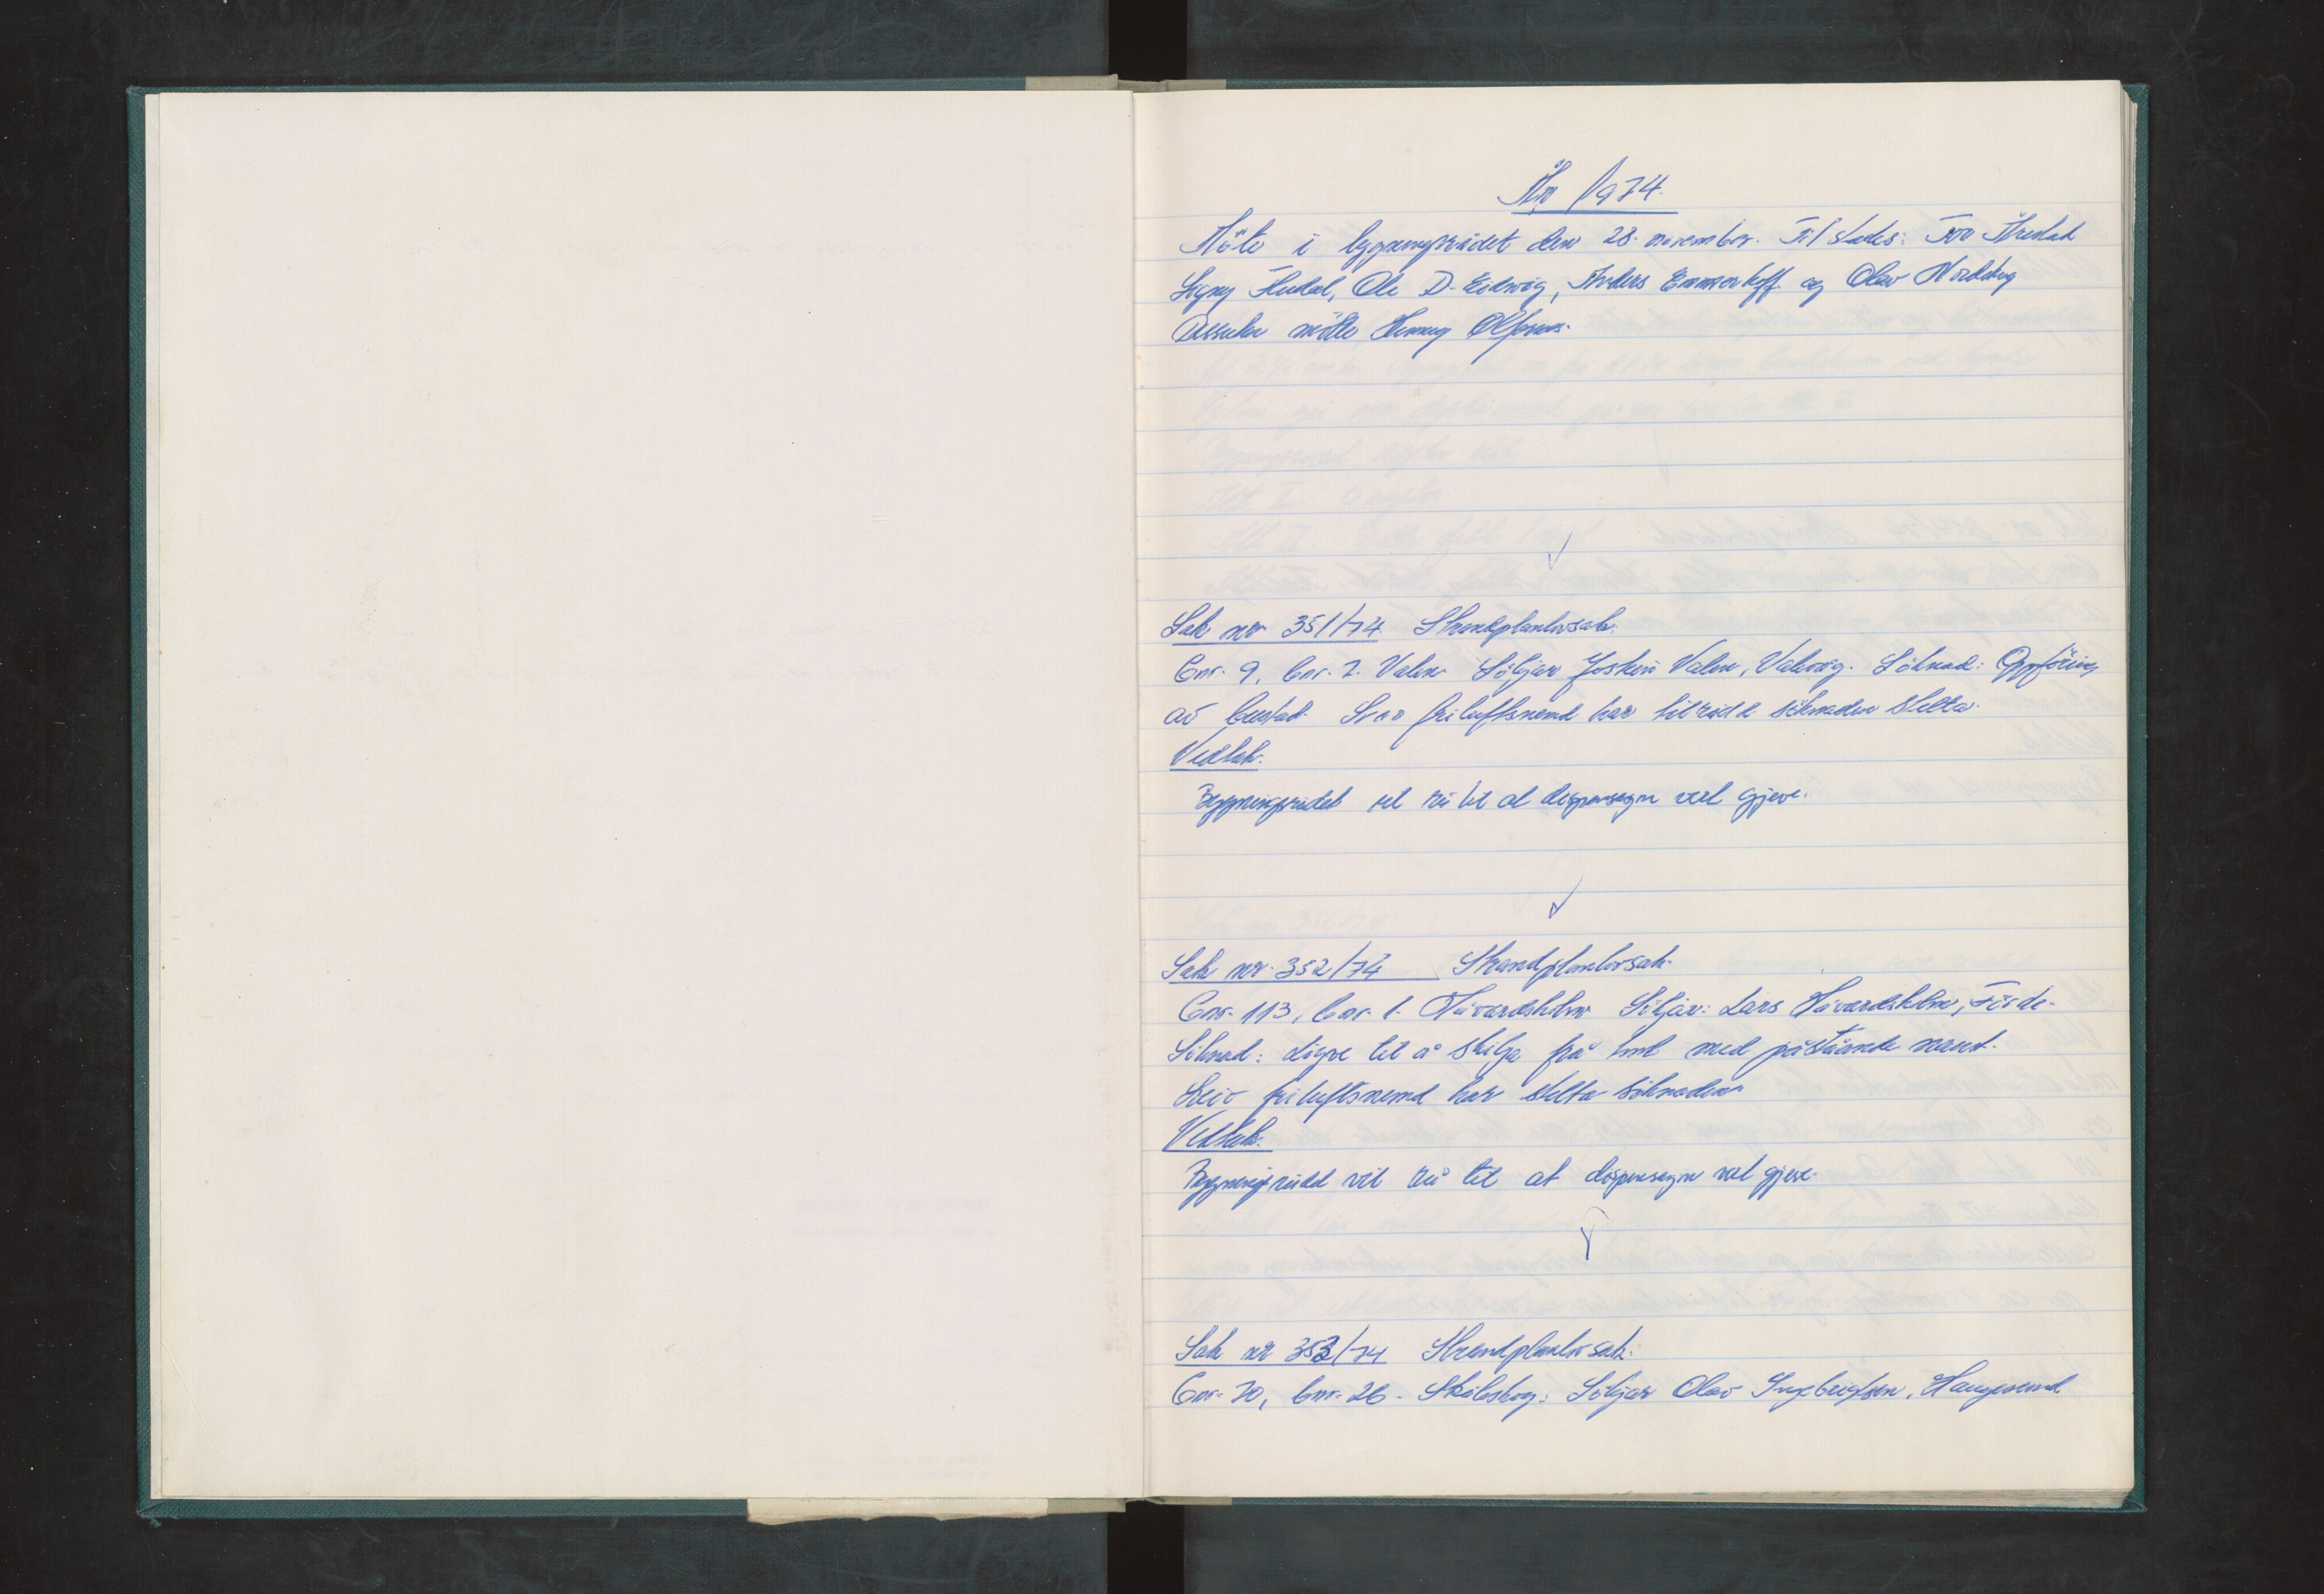 År 1974.
Møte i bygningsrådet den 28. november. Til stades: Ivar
Signy Ole D. Eidsvåg, Anders Emmerhoff og Olav Nordskog
Dessutan møtte Henny Alfsen.
✓
Sak nr 351/74 Strandplanlovsak.
Gnr. 9, bnr. 7. Valen Søkjar Jostein Valen, Valevåg. Søknad: Oppføring
av bustad. Sveio friluftsnemd har tilrådd søknaden stetta.
Vedtak.
Bygningsrådet vil rå til at dispensasjon vert gjeve.
✓
Sak nr. 352/74 Strandplanlovsak.
Gnr. 113, bnr. 1. Håvardsholm Søkjar: Lars Håvardsholm, Førde.
Søknad: Løyve til å skilja frå tomt med påståande naust.
Sveio friluftsnemd har stetta søknaden
Vedtak.
Bygningsrådet vil rå til at dispensasjon vert gjeve.
Sak nr 353/74 Strandplanlovsak.
Gnr. 70, bnr. 26. Søkjar Olav Ingebrigtsen, Haugesund